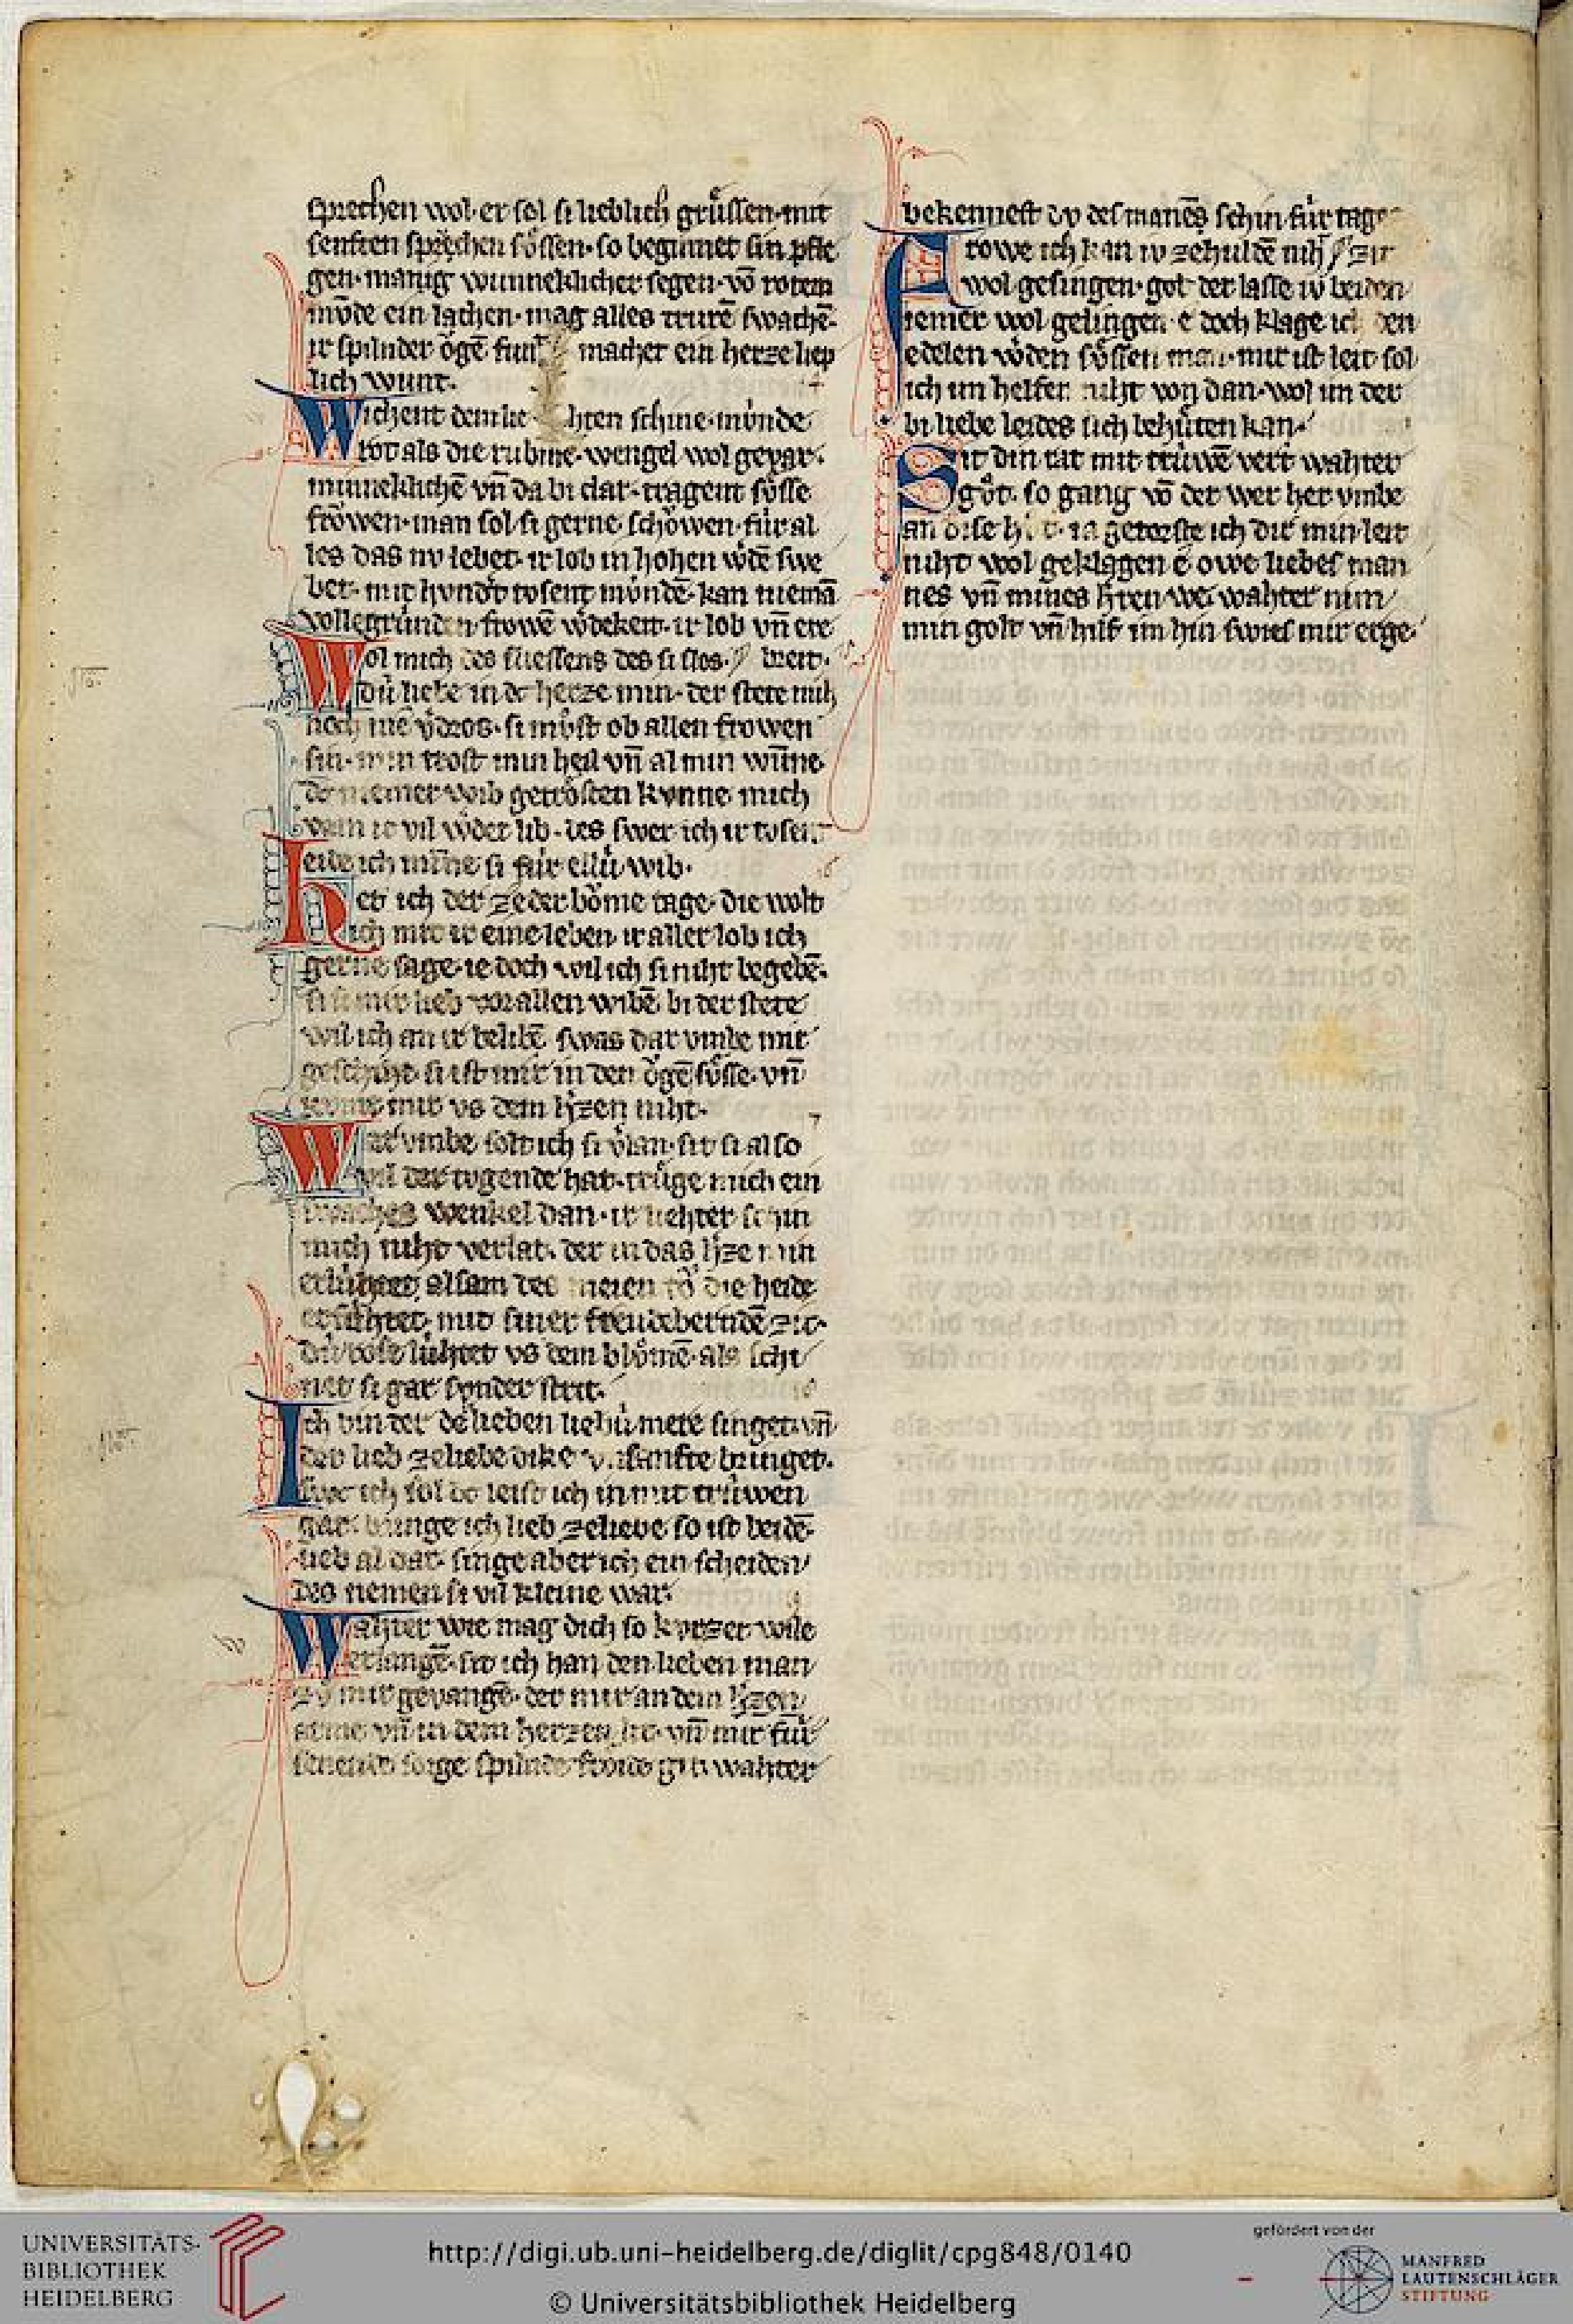 sprechen wol· er sol si lieblich grůssen· mit
senften sprechen sůssen· so beginnet sin pfle
gen· manig wunneklicher segen· võ rotem
mvͦde ein lachen· mag alles trurẽ swachẽ·
ir spilnder ŏgẽ machet ein herze liep
lich wunt·
Wichent schine· mvͤnde
rot als die rubine· wengel wol gevar·
minneklichẽ vñ da bi clar· tragent sůsse
frŏwen· man sol si gerne schŏwen· für al
les das nv lebet· ir lob in hohen wͦdẽ swe
bet· mit hvndͦt tosent mvͤndẽ· kan niemã
volle grúnden frowẽ wͦdekeit· ir lob vñ ere
Wol mich des sliessens des si slos· breit·
dú liebe in dc herze min· der stete mih
noch nie vͦdros· si mvͤst ob allen frowen
sin· min trost min heil vñ al min wñne·
dc niemer wib getrŏsten kvnne mich
wan ir vil wͦder lib· des swer ich ir tosent
eide ich miñe si für ellú wib·
Het ich der zederbŏme tage· die wolt
ich mit ir eine leben· ir aller lob ich
gerne sage· ie doch wil ich si niht begebẽ·
si si mir lieb vor allen wibẽ· bi der stete
wil ich an ir belibẽ· swas dar vmbe mir
geschiht· si ist mir in den ŏgẽ sůsse· vñ
kvmt mir vs dem hͦzen niht·
War vmbe solt ich si vͦlan· sit si also
vil der tvgende hat· trüge mich ein
swaches wenkel dan· ir liehter schin
mich niht verlat· der in das hͦze min
erlúhtet· alsam der meien tŏ die heide
erfúhtet· mit siner freudeberndẽ zit·
dú rose lúhtet vs dem blůmẽ· als schi
net si gar svnder strit·
Ich bin der dͦ lieben liebú mere singet· vñ
der lieb ze liebe dike vnsanfte bringet·
swc ich sol dc leist ich in mit trúwen
gar· bringe ich lieb ze liebe so ist beidẽ·
lieb al dar· singe aber ich ein scheiden
des nemen si vil kleine war·
Wahter wie mag dich so kvrzer wile
erlangẽ· sit ich han den lieben man
zů mir gevangẽ· der mir an dem hͦzen
vñ in dem herzen lit· vñ mir für
senende sorge spilnde frŏide git· wahter
bekennest dv des manẽs schin für tages
Frowe ich kan iv ze huldẽ niht zit
wol gesingen· got der lasse iv beiden
iemer wol gelingen· e doch klage ich den
edelen wͦden sůssen man· mir ist leit sol
ich im helfen niht von dan· wol im der
bi liebe leides sich behůten kan·
Sit din rat mit trúwẽ vert wahter
gůt· so gang võ der wer her vmbe
an dise hůt· ia getorste ich dir min leit
niht wol geklagen e· owe liebes man
nes vñ mines hͦren we· wahter nim
min golt vñ hilf im hin swies mir erge·
UNIVERSITÄTS-
BIBLIOTHEK
HEIDELBERG
http://digi.ub.uni-heidelberg.de/diglit/cpg848/0140
© Universitätsbibliothek Heidelberg
gefördert von der
MANFRED
LAUTENSCHLÄGER
STIFTUNG